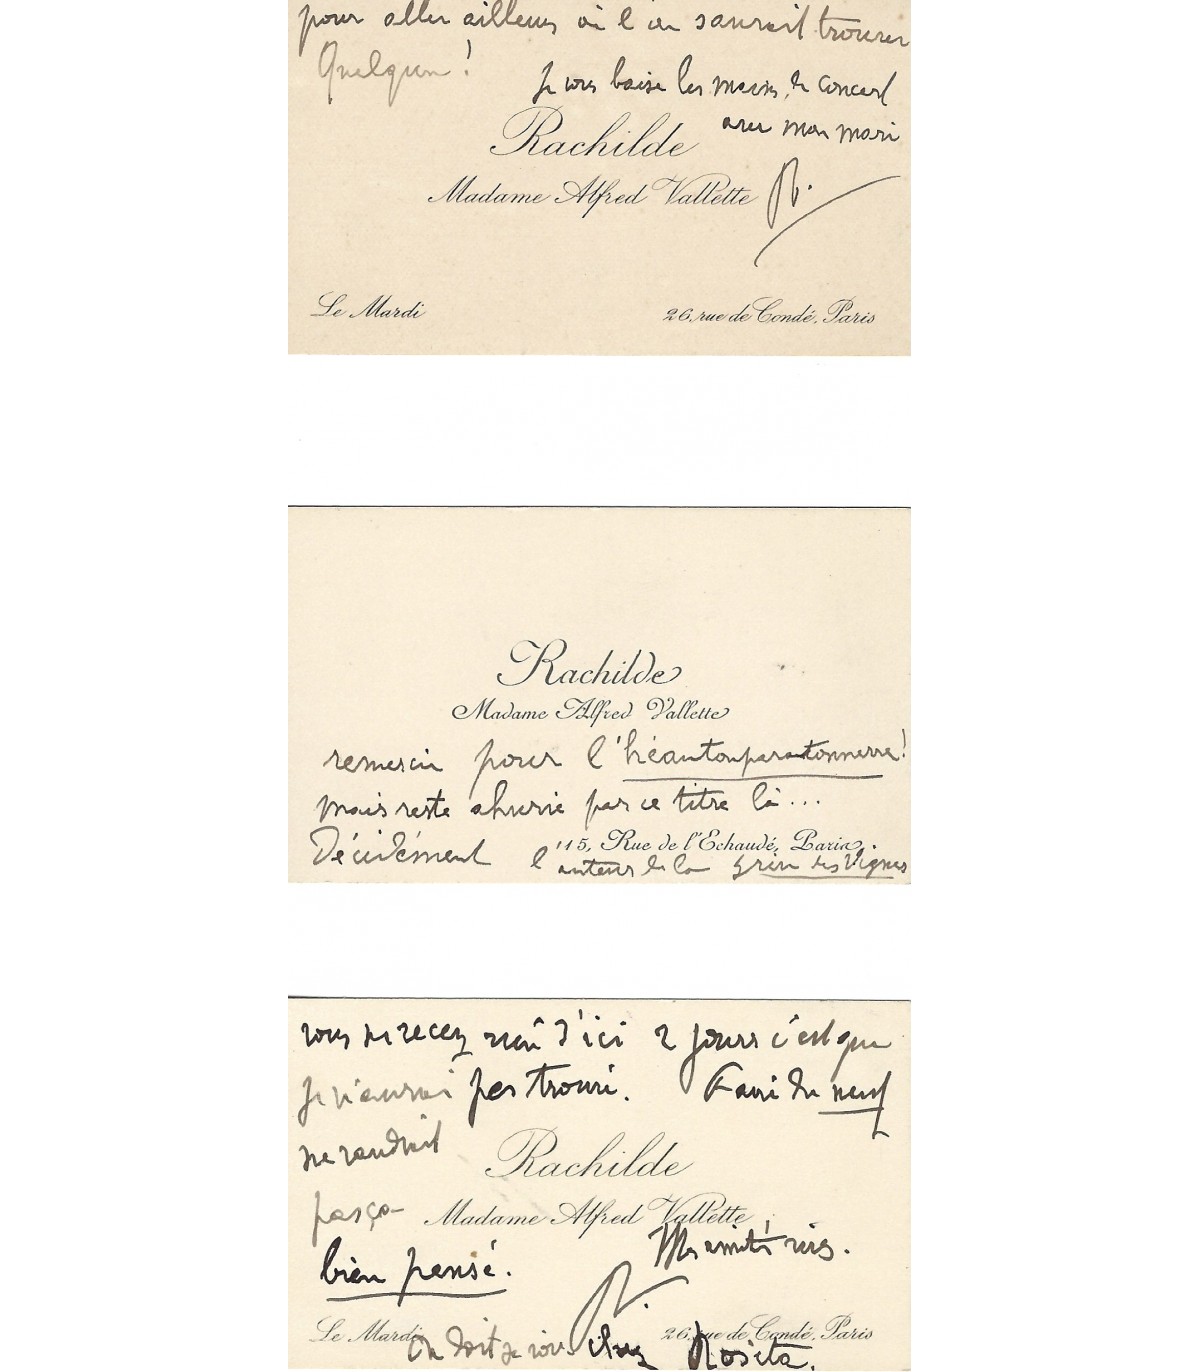 pour aller ailleurs où l'on saurait trouver
Quelqu'un !
Je vous baise les mains, de concert
avec mon mari
Rachilde
Madame Alfred Vallette R.
Le Mardi 26, rue de Condé, Paris
Rachilde
Madame Alfred Vallette
remercie pour l'héautonparatonnerre!
mais reste ahurie par ce titre là...
15, Rue de l'Echaudé, Paris.
Décidément l'auteur de la
vous ne recevez rien d'ici 2 jours c'est que
je n'aurai pas trouvé. Faire du neuf
ne vaudrait
Rachilde
pas ça
Madame Alfred Vallette
bien pensé. Mes amitiés
R.
Le Mardi 26, rue de Condé, Paris
On doit se voir chez Rosita.